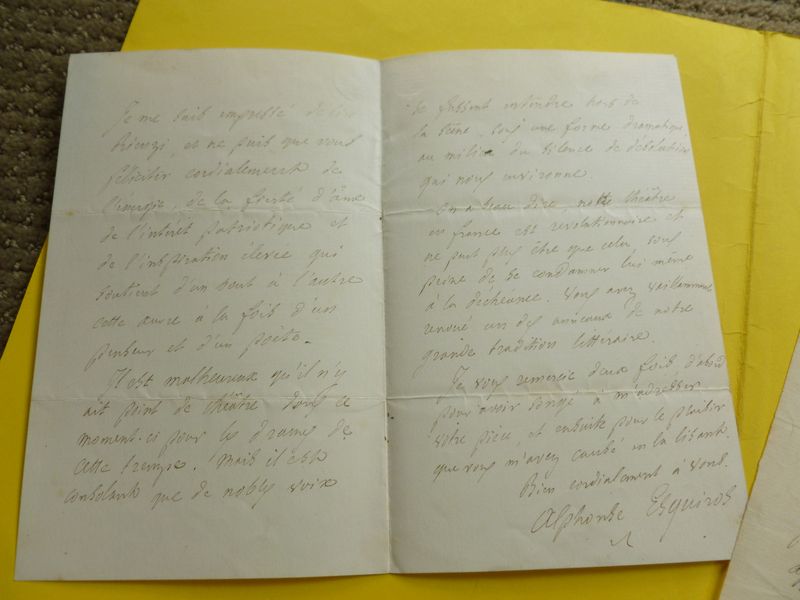 Je me suis empressé de lire
Rienzi, et ne puis que vous
féliciter cordialement de
l'énergie, de la fierté d'âme
de l'intérêt patriotique et
de l'inspiration élevée qui
soutient d'un bout à l'autre
cette œuvre à la fois d'un
penseur et d'un poète.
Il est malheureux qu'il n'y
ait point de théâtre dans ce
moment-ci pour les drames de
cette trempe. Mais il est
consolant que de nobles voix
se fassent entendre hors de
la scène, sous une forme dramatique
au milieu du silence de
qui nous environne.
On a beau dire, notre théâtre
en france est révolutionnaire et
ne peut plus être que cela, sous
peine de se condamner lui même
à la déchéance. Vous avez vaillamment
renoué un des anneaux de notre
grande tradition littéraire.
Je vous remercie deux fois d'abord
pour avoir songé à m'adresser
votre pièce, et ensuite pour le plaisir
que vous m'avez causé en la lisant.
Bien cordialement à vous.
Alphonse Esquiros